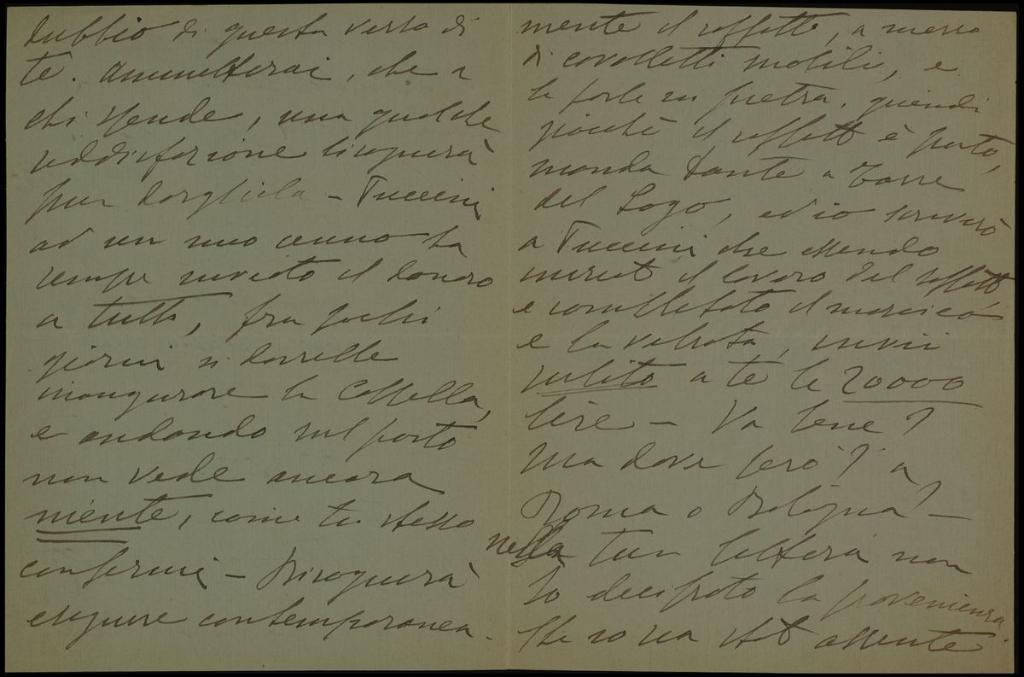 dubbio di questa verso di
te. Ammetterai, che a
chi spende, una qualche
soddisfazione bisognerà
pur dargliela - Puccini
ad un suo cenno ha
sempre inviato il denaro
a tutti, fra pochi
giorni si dovrebbe
inaugurare la Cappella,
e andando sul posto
non vede ancora
niente, come tu stesso
confermi - Bisognerà
eseguire contemporanea-
mente il soffitto, a mezzo
di cavalletti mobili, e
le porte in pietra. quindi
poichè il soffitto è pronto,
manda Dante a Torre
del Lago, ed io scriverò
a Puccini che essendo
il lavoro del soffitto,
e completato il mosaico
e la vetrata, invii
subito a te le 20000
lire - Va bene?
Ma dove però? a
Roma o Bologna? -
nella tua lettera non
ho decifrato la provenienza.
Che io sia stato assente